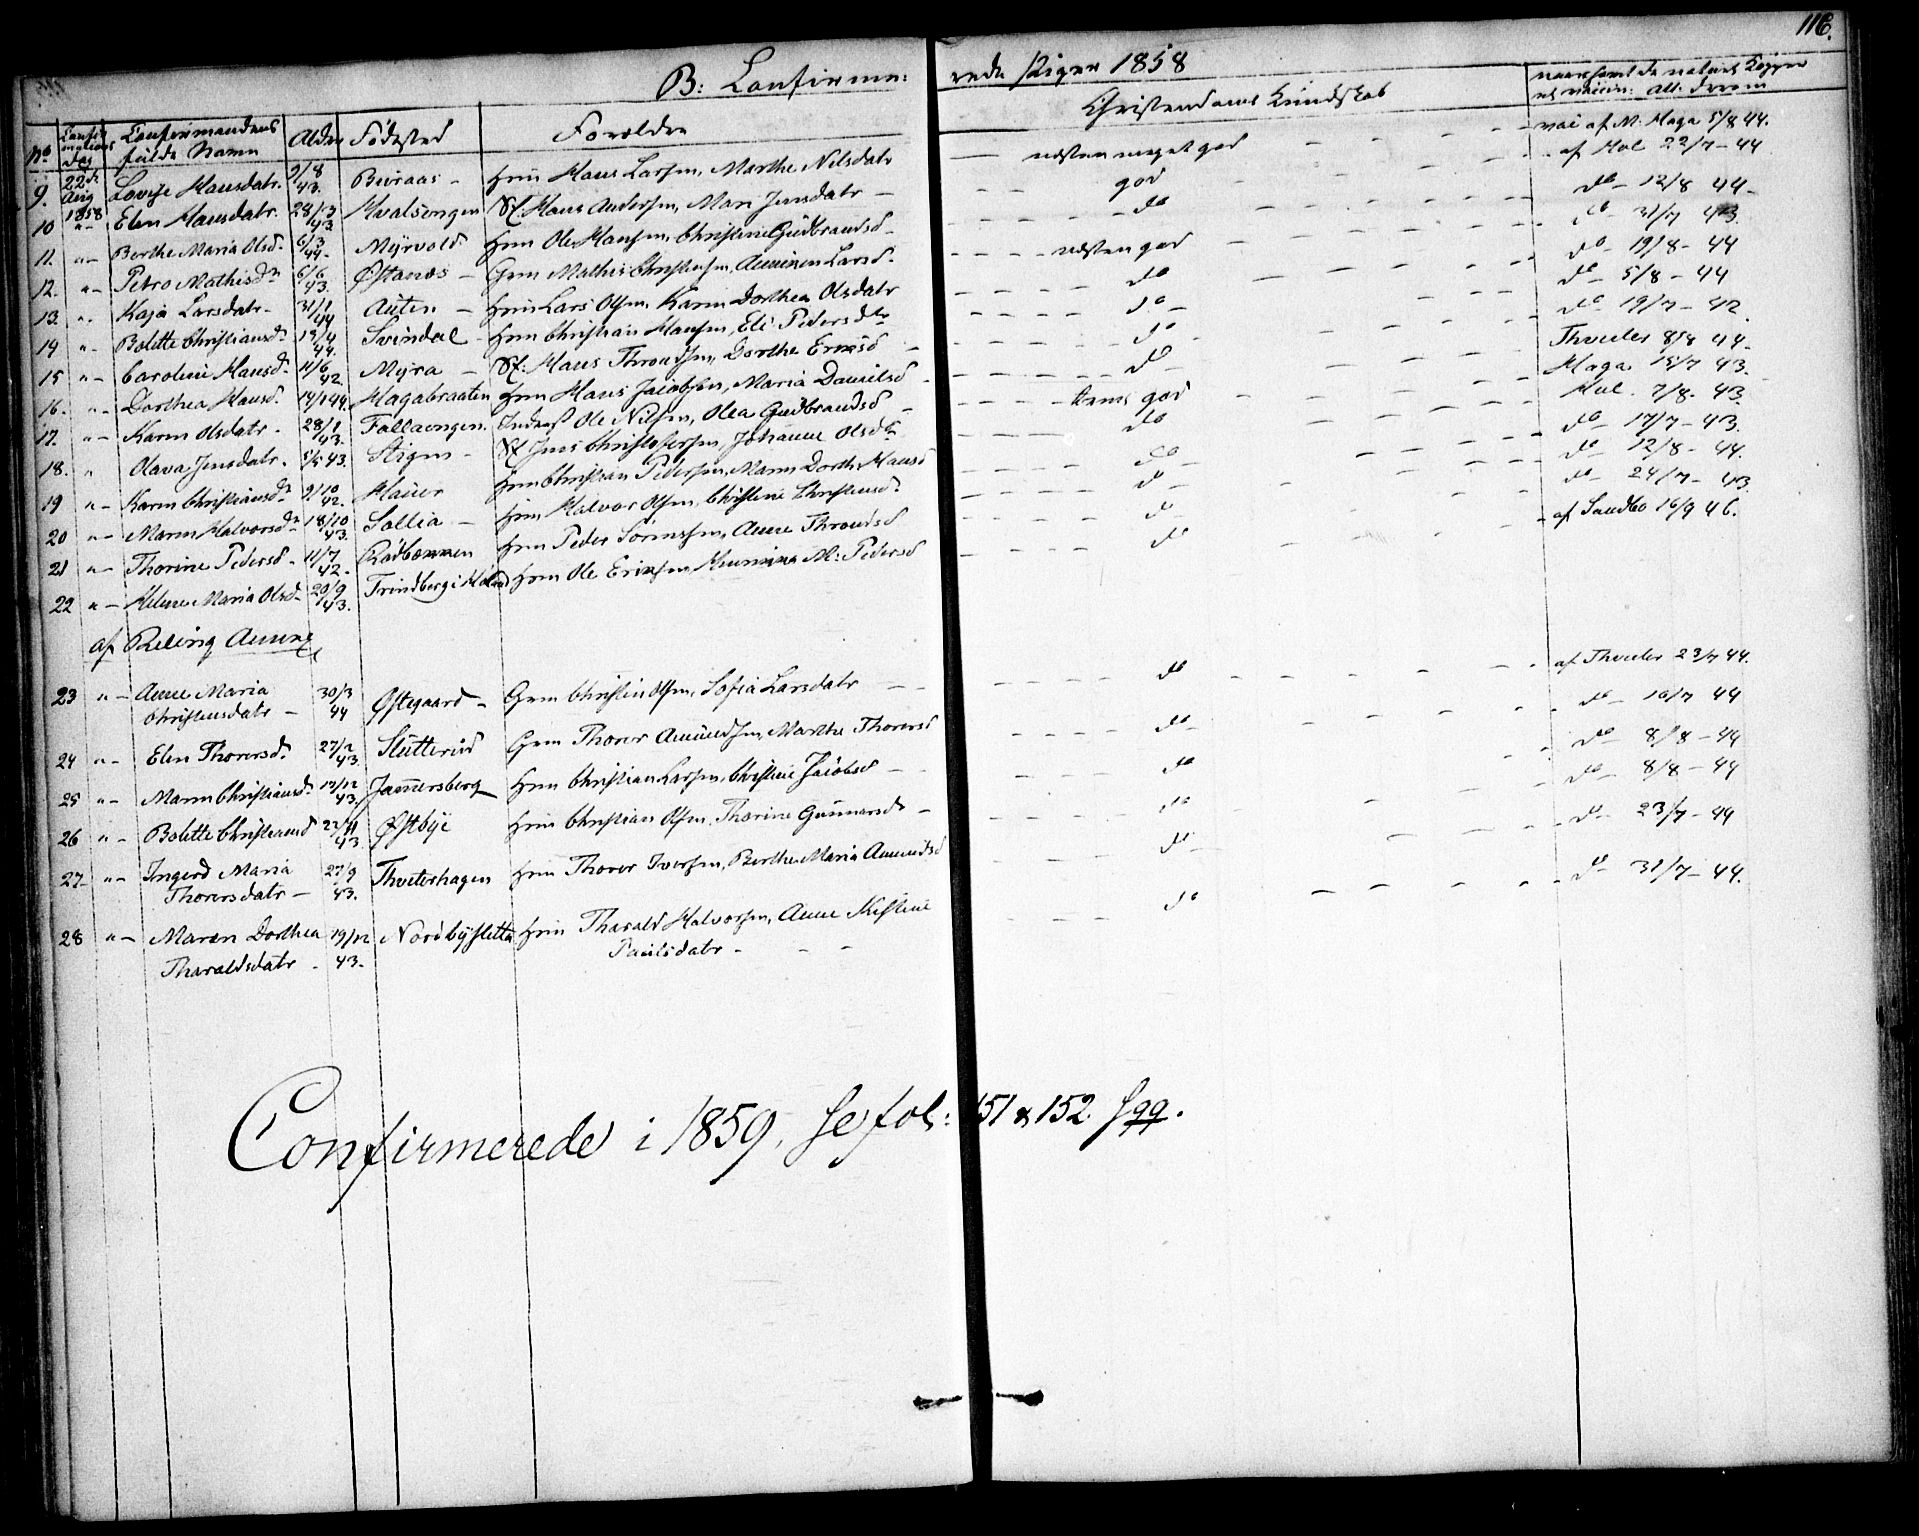 116.
B: Confirme: rede Piger 1858
No Confirmations Dag Confirmandens fulde Navn Alder Fødested Forældre Christendoms Kundskab naar samt de naturl Kopper
9. 22de Aug 1858 Lovise Hansdatr. 9/8 43. Buraas - Hmd Hans Larsen, Marthe Nilsdatr næsten meget god vac af M. Haga 5/8 44.
10 " - Elen Hansdatr. 28/3 43 Hvalsengen Sf. Hans Andersen, Mari Jensdatr god af Hol 22/7 - 44
11. " - Berthe Maria Olsd. 6/3 44. Myrvold Hmd Ole Hansen, Christine Gudbrandsd do do - 12/8 44
12. " - Petra Mathisdr 6/6 43. Østanæs - Grm Mathis Christensen, Larsd. næsten god do 31/7 43.
13. " - Kaja Larsdatr. 31/1 44 Auten - Hmd Lars Olsen, Karen Dorthea Olsdatr do do - 19/8 - 44
14 " - Bolette Christiansd. 19/4 44. Svindal - Hmd Christian Hansen, Eli Pedersdr do - do - 5/8 - 44
15 " - Caroline Hansd. 11/6 42. Myra - Sf. Hans Throndsen, Dorthe Ericsd do do - 19/7 - 42.
16. " - Dorthea Hansd. 14/1 44. Hagabraaten Hmd Hans Jacobsen, Maria Danielsd do Thveter 8/8 44.
17. " - Karen Olsdatr. 28/1 43. Fallaengen. Inderst Ole Nilsen, Olea Gudbrandsd god Haga 15/7 43.
18. " Olava Jensdatr. 5/5 43. Stigen - Sf Jens Christophersen, Johanne Olsdr do Hol. 7/8. 43.
19 " - Karen Christiansdr 9/10 42. Hauer Hmd Christian Pedersen, Maren Dorth. Hansd do - do - 17/7 - 43.
20 " - Maren Halvorsdr 18/10 43. Sollia - Hmd Halvor Olsen, Christine Christensd. do - do - 12/8 - 44.
21 " - Thorine Pedersd. 11/7 42. Hmd Peder Sørensen, Anne Throndsd do do - 24/7 - 43.
22 " - Helene Maria Olsd. 20/9 43. Trindberg i Høland Hmd Ole Ericsen, M: Pedersd do af Sandbo 16/9 46.
af Reling Annex
23 " - Anne Maria Christensdatr - 30/3 44 Østegaard - Grm Christen Olsen, Sofia Larsdatr do af Thveter 23/7 44.
24 " - Elen Thorersd. 27/2 43. Slutterud Grm Thorer Amundsen, Marthe Thorersd do - do - 16/7 44
25 " - Maren Christiansd. 17/12 43. Jannersberg Hmd Christian Larsen, Christine Jacobsd do do - 8/8 - 44
26 " - Bolette Christiansd 27/11 43. Østbye Hmd Christian Olsen, Thorine Gunnarsd do do - 8/8 - 44
27. " - Ingerd Maria Thorersdatr - 27/9 43. Thveterhagen Hmd Thorer Iversen, Berthe Maria Amundsd do - do - 23/7 - 44
28 " - Maren Dorthea Tharaldsdatr - 19/12 43. Nordbysletta Hmd Tharald Halvorsen, Anne Kistine Paulsdatr - do do - 31/7 - 44.
Confirmerede i 1859, se fol: 151 & 152 sqq.